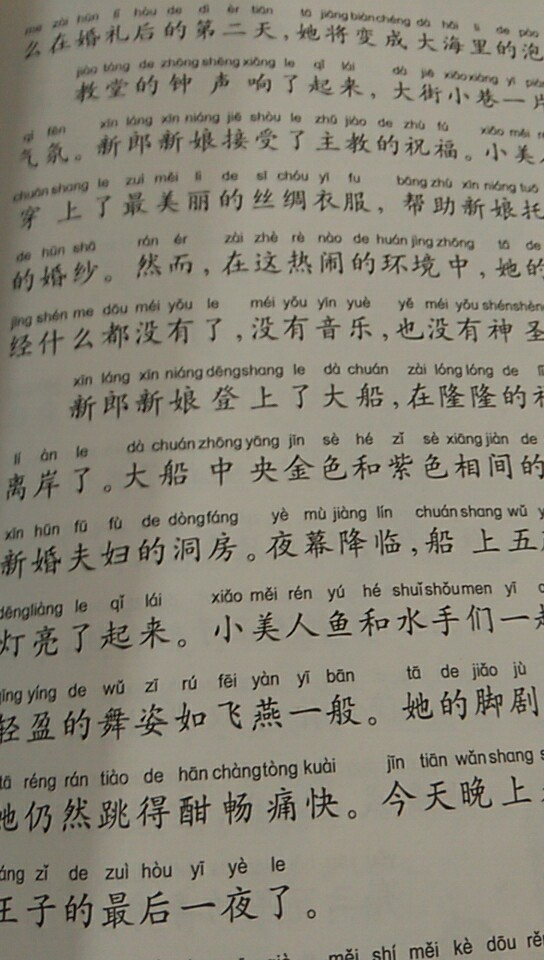 me zài hūn lǐ hòu de dì èr tiān tā jiāng biàn chéng dà hǎi lǐ de pào
么在婚礼后的第二天,她将变成大海里的泡
jiào táng de zhōng shēng xiǎng le qǐ lái dà jiē xiǎo xiàng yí piàn
教堂的钟声响了起来,大街小巷一片
qì fēn xīn láng xīn niáng jiē shòu le zhǔ jiào de zhù fú xiǎo měi
气氛。新郎新娘接受了主教的祝福。小美
chuān shang le zuì měi lì de sī chóu yī fu bāng zhù xīn niáng tuō
穿上了最美丽的丝绸衣服,帮助新娘托
de hūn shā rán ér zài zhè rè nào de huán jìng zhōng tā de
的婚纱。然而,在这热闹的环境中,她的
jīng shén me dōu méi yǒu le méi yǒu yīn yuè yě méi yǒu shén shèng
经什么都没有了,没有音乐,也没有神圣
xīn láng xīn niáng dēng shang le dà chuán zài lóng lóng de
新郎新娘登上了大船,在隆隆的礼
lí àn le dà chuán zhōng yāng jīn sè hé zǐ sè xiāng jiàn de
离岸了。大船中央金色和紫色相间的
xīn hūn fū fù de dòng fáng yè mù jiàng lín chuán shang wǔ
新婚夫妇的洞房。夜幕降临,船上五
dēng liàng le qǐ lái xiǎo měi rén yú hé shuǐ shǒu men yī
灯亮了起来。小美人鱼和水手们一起
qīng yíng de wǔ zī rú fēi yàn yī bān tā de jiǎo jù
轻盈的舞姿如飞燕一般。她的脚剧
tā réng rán tiào de hān chàng tòng kuài jīn tiān wǎn shang
她仍然跳得酣畅痛快。今天晚上
áng zǐ de zuì hòu yī yè le
王子的最后一夜了。
měi shí měi kè dōu